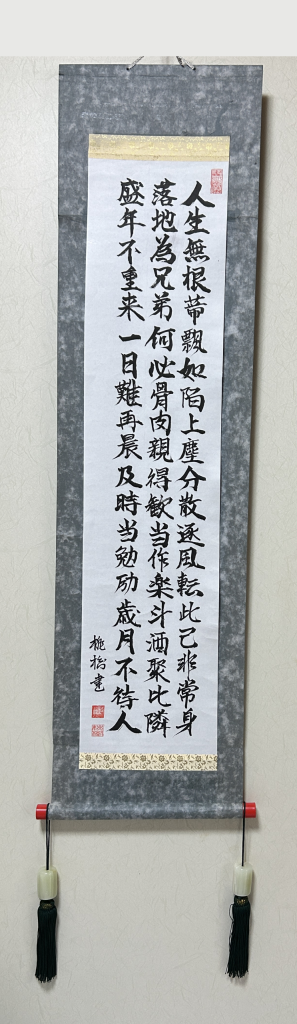 人生無根蒂飄如陌上塵分散逐風転此已非常身
落地為兄弟何必骨肉親得歓当作楽斗酒聚比隣
盛年不重来一日難再晨及時当勉励歳月不待人